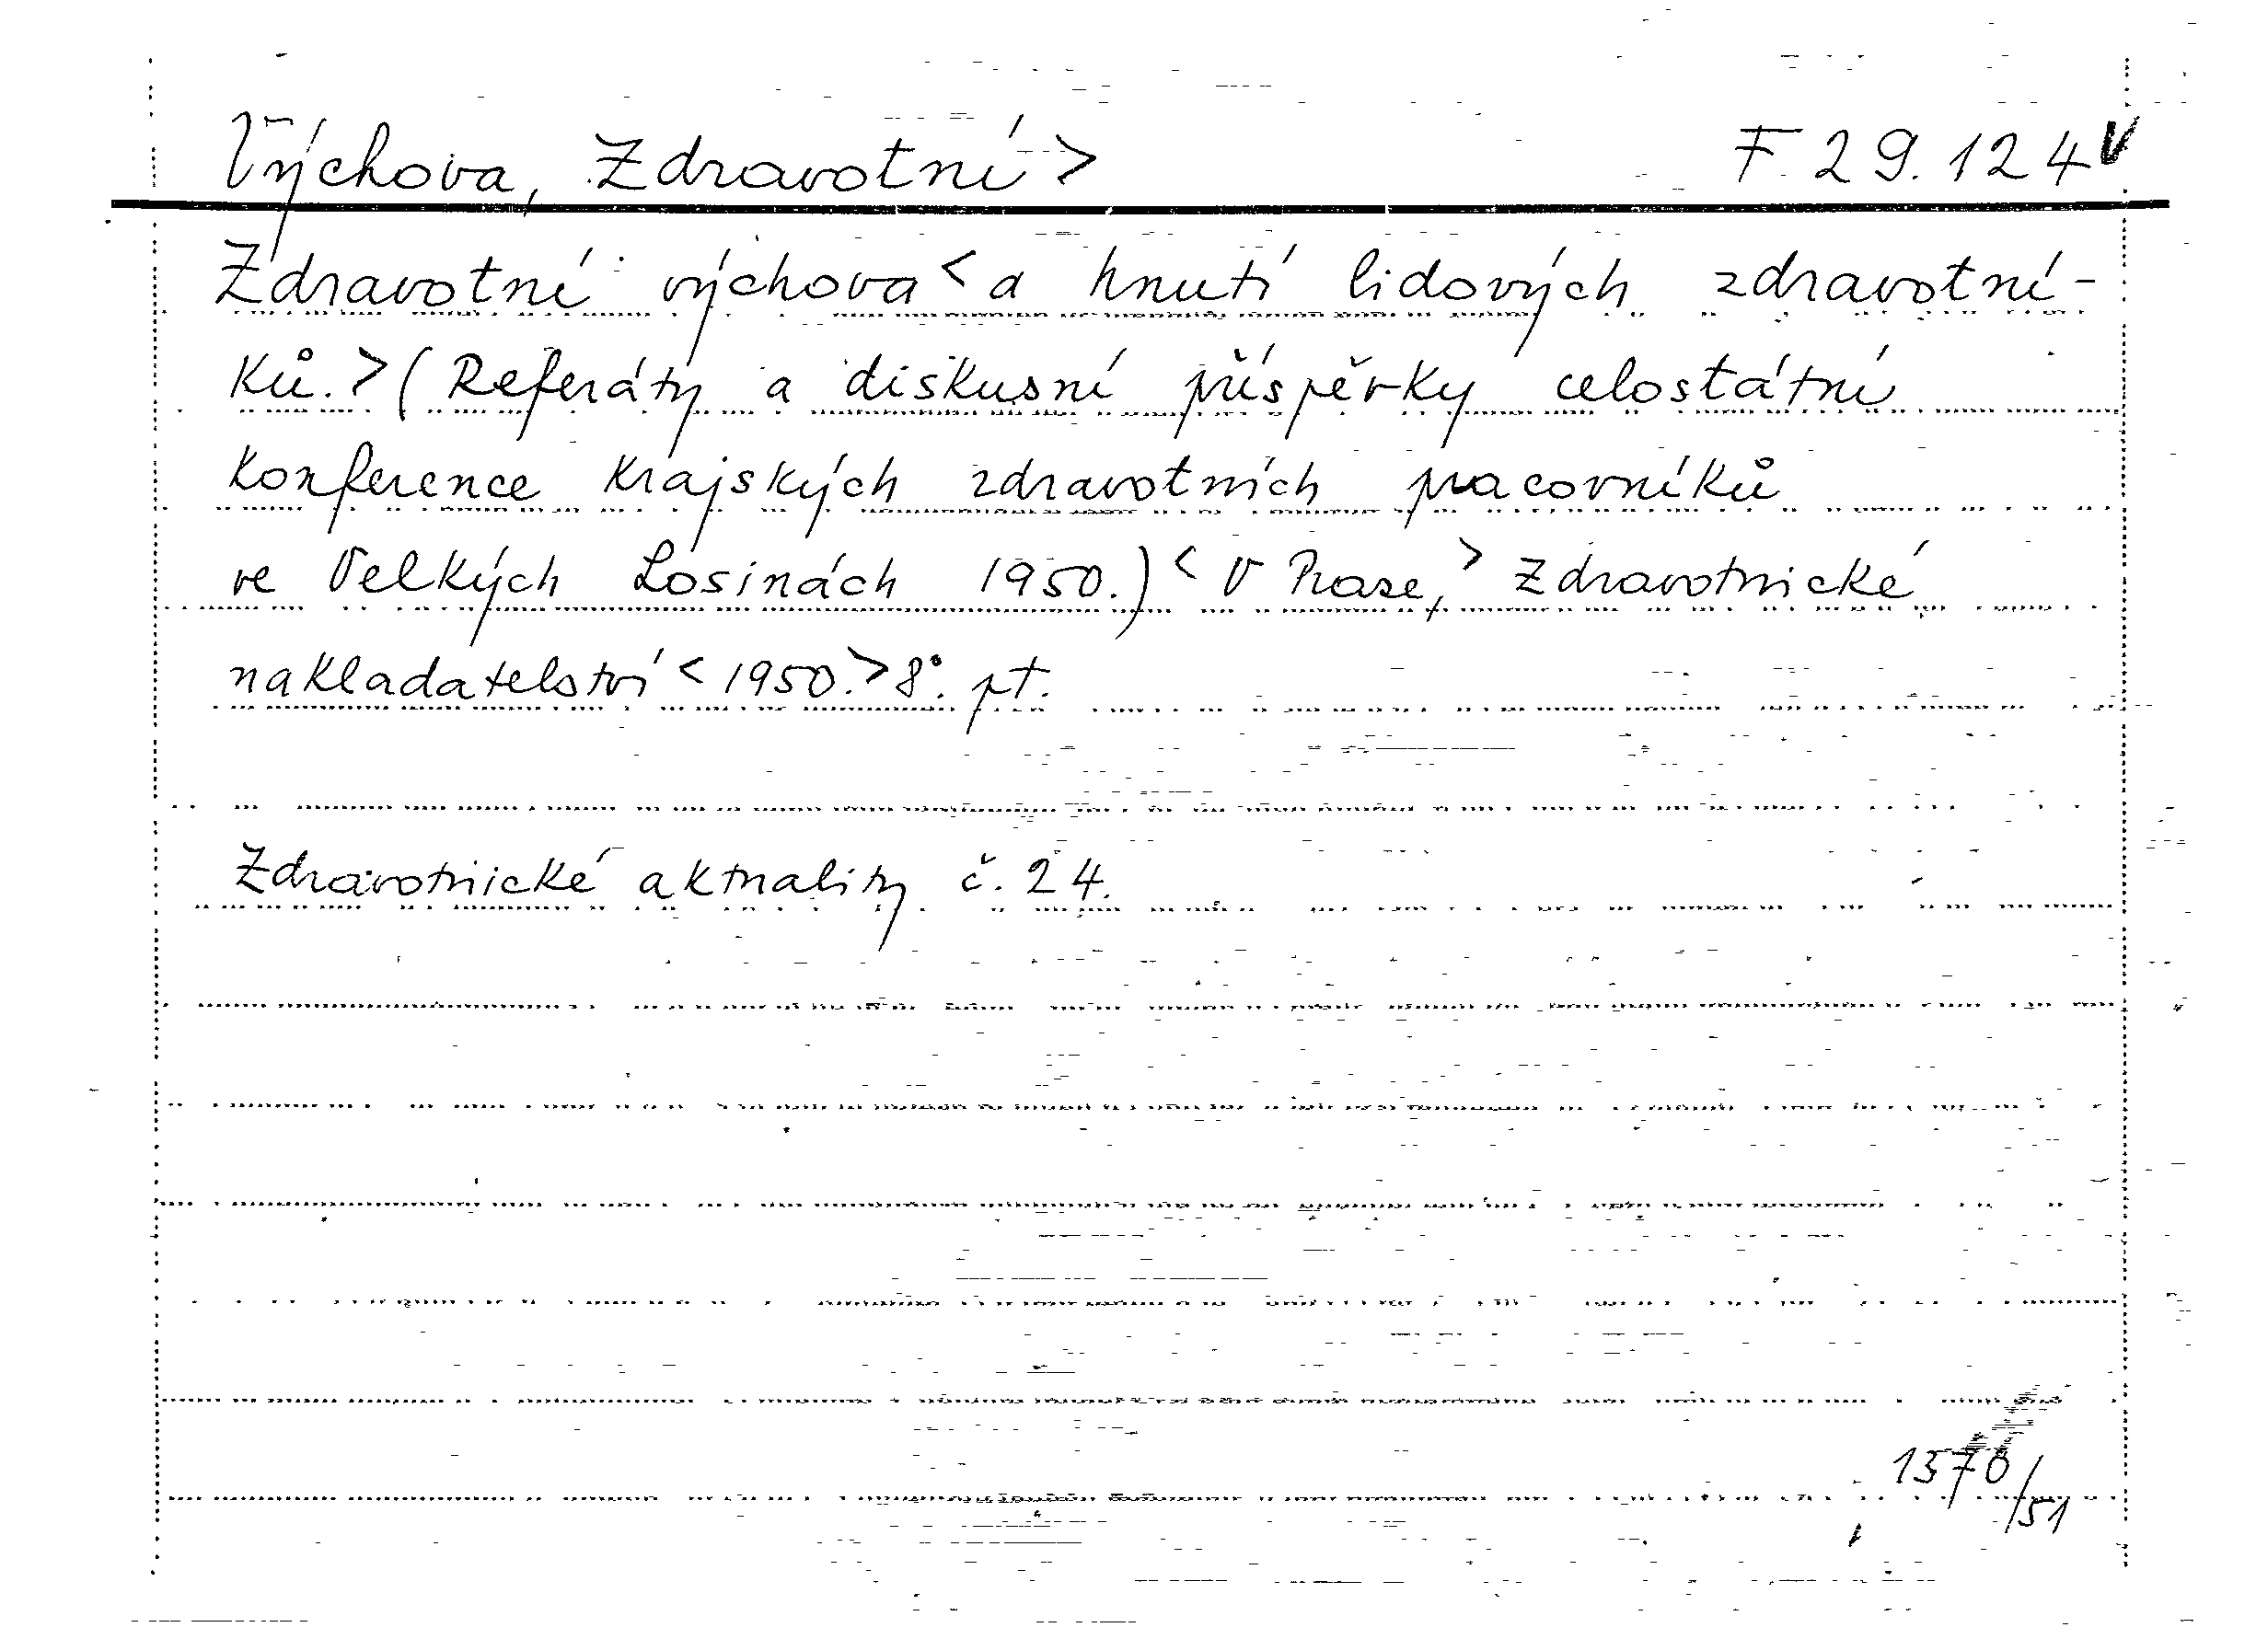 Výchova, Zdravotní > F 29.124 V
Zdravotní výchova < a hnutí lidových zdravotní-
ků. > (Referáty a diskusní příspěvky celostátní
konference krajských zdravotních pracovníků
ve Velkých Losinách 1950.) < V Praze, > Zdravotnické
nakladatelství < 1950. > 8°. pt.
Zdravotnické aktuality č. 24.
1570/51